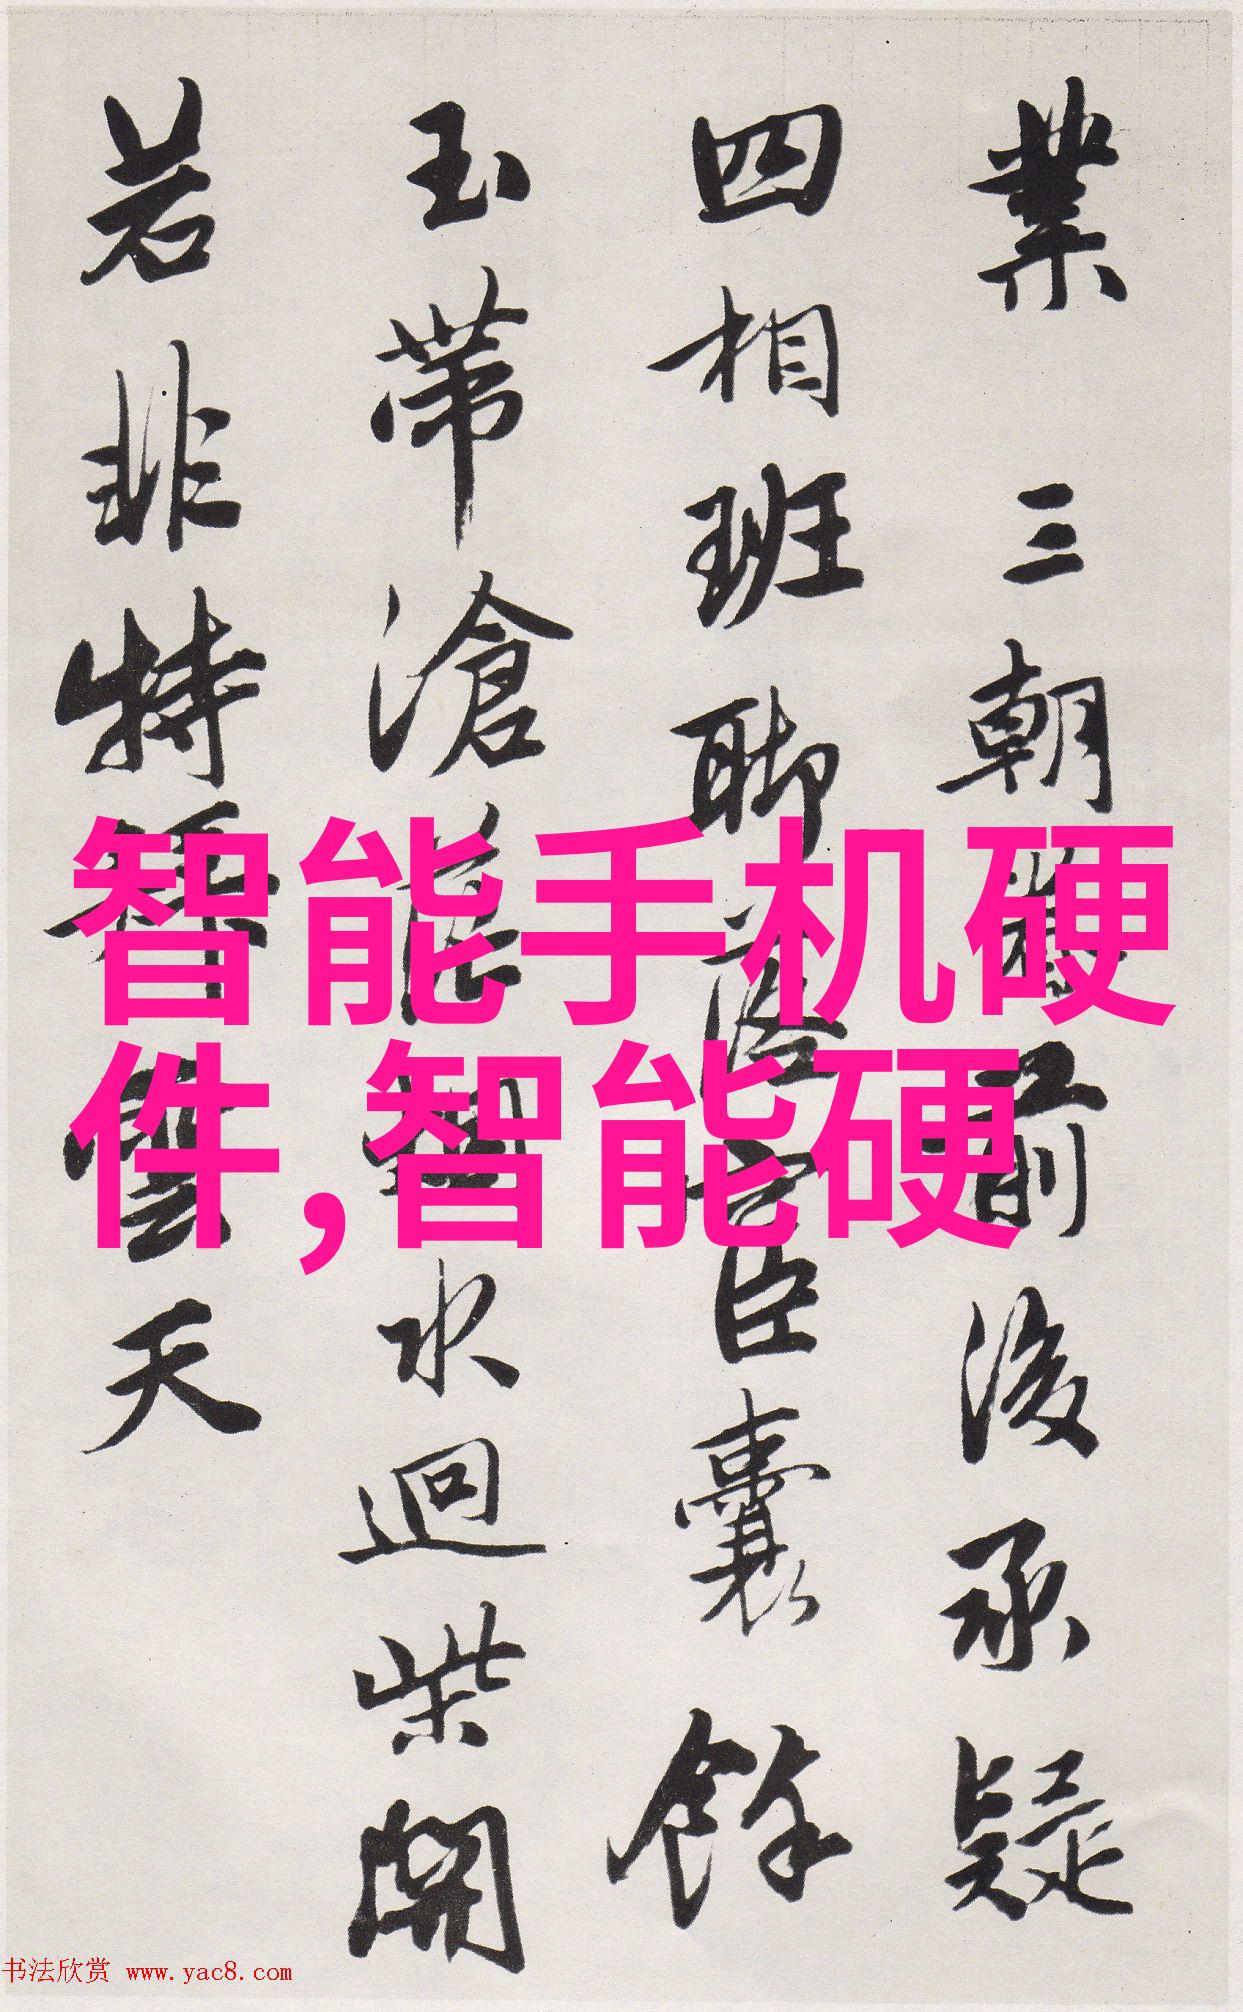 業 三朝前後承疑
四相班聊臣囊餘
玉帶滄水迴柴開
若非特雲天
智能手机硬
件,智能硬
书法欣赏 www.yac8.com